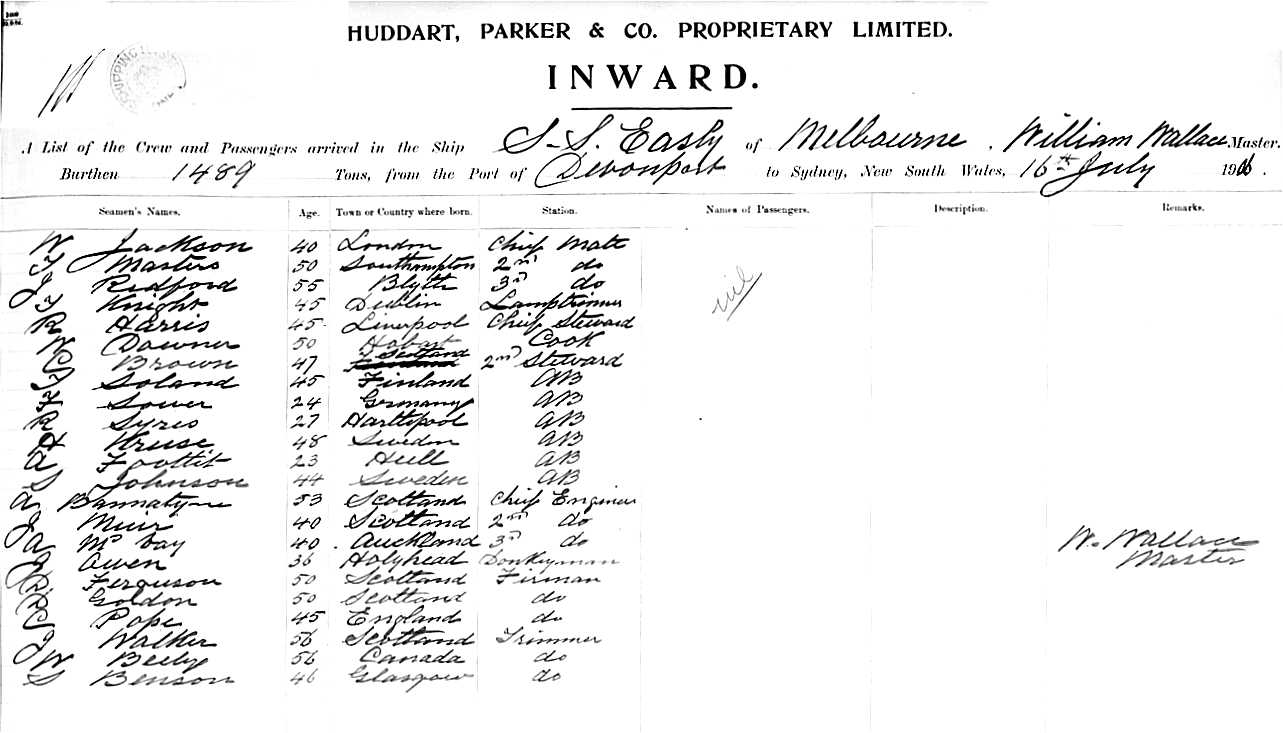 HUDDART, PARKER & CO. PROPRIETARY LIMITED.
INWARD.
A List of the Crew and Passengers arrived in the Ship S.S. Easby of Melbourne. William Wallace Master.
Burthen 1489 Tons, from the Port of Devonport to Sydney, New South Wales, 16th July 190
Seamen's Names. Age. Town or Country where born. Station. Names of Passengers. Description. Remarks.
W Jackson 40 London Chief Mate
Masters 50 Southampton 2nd do
Redford 55 Blyth 3rd do
nil
Knight 45 Dublin Lamptrimmer
R Harris 45 Liverpool Chief Steward
W Downer 50 Hobart Cook
Brown 47 Scotland 2nd Steward
Soland 45 Finland AB
Sower 24 Germany AB
R Syres 27 Hartlepool AB
H Kruse 48 Sweden AB
A Foottit 23 Hull AB
S Johnson 44 Sweden AB
A Bannatyne 53 Scotland Chief Engineer
J Muir 40 Scotland 2nd do
A McDay 40 Auckland 3rd do W. Wallace
Owen 36 Holyhead Donkeyman Master
Ferguson 50 Scotland Fireman
Goldon 50 Scotland do
Pope 45 England do
J Walker 56 Scotland Trimmer
W Beely 56 Canada do
S Benson 46 Glasgow do